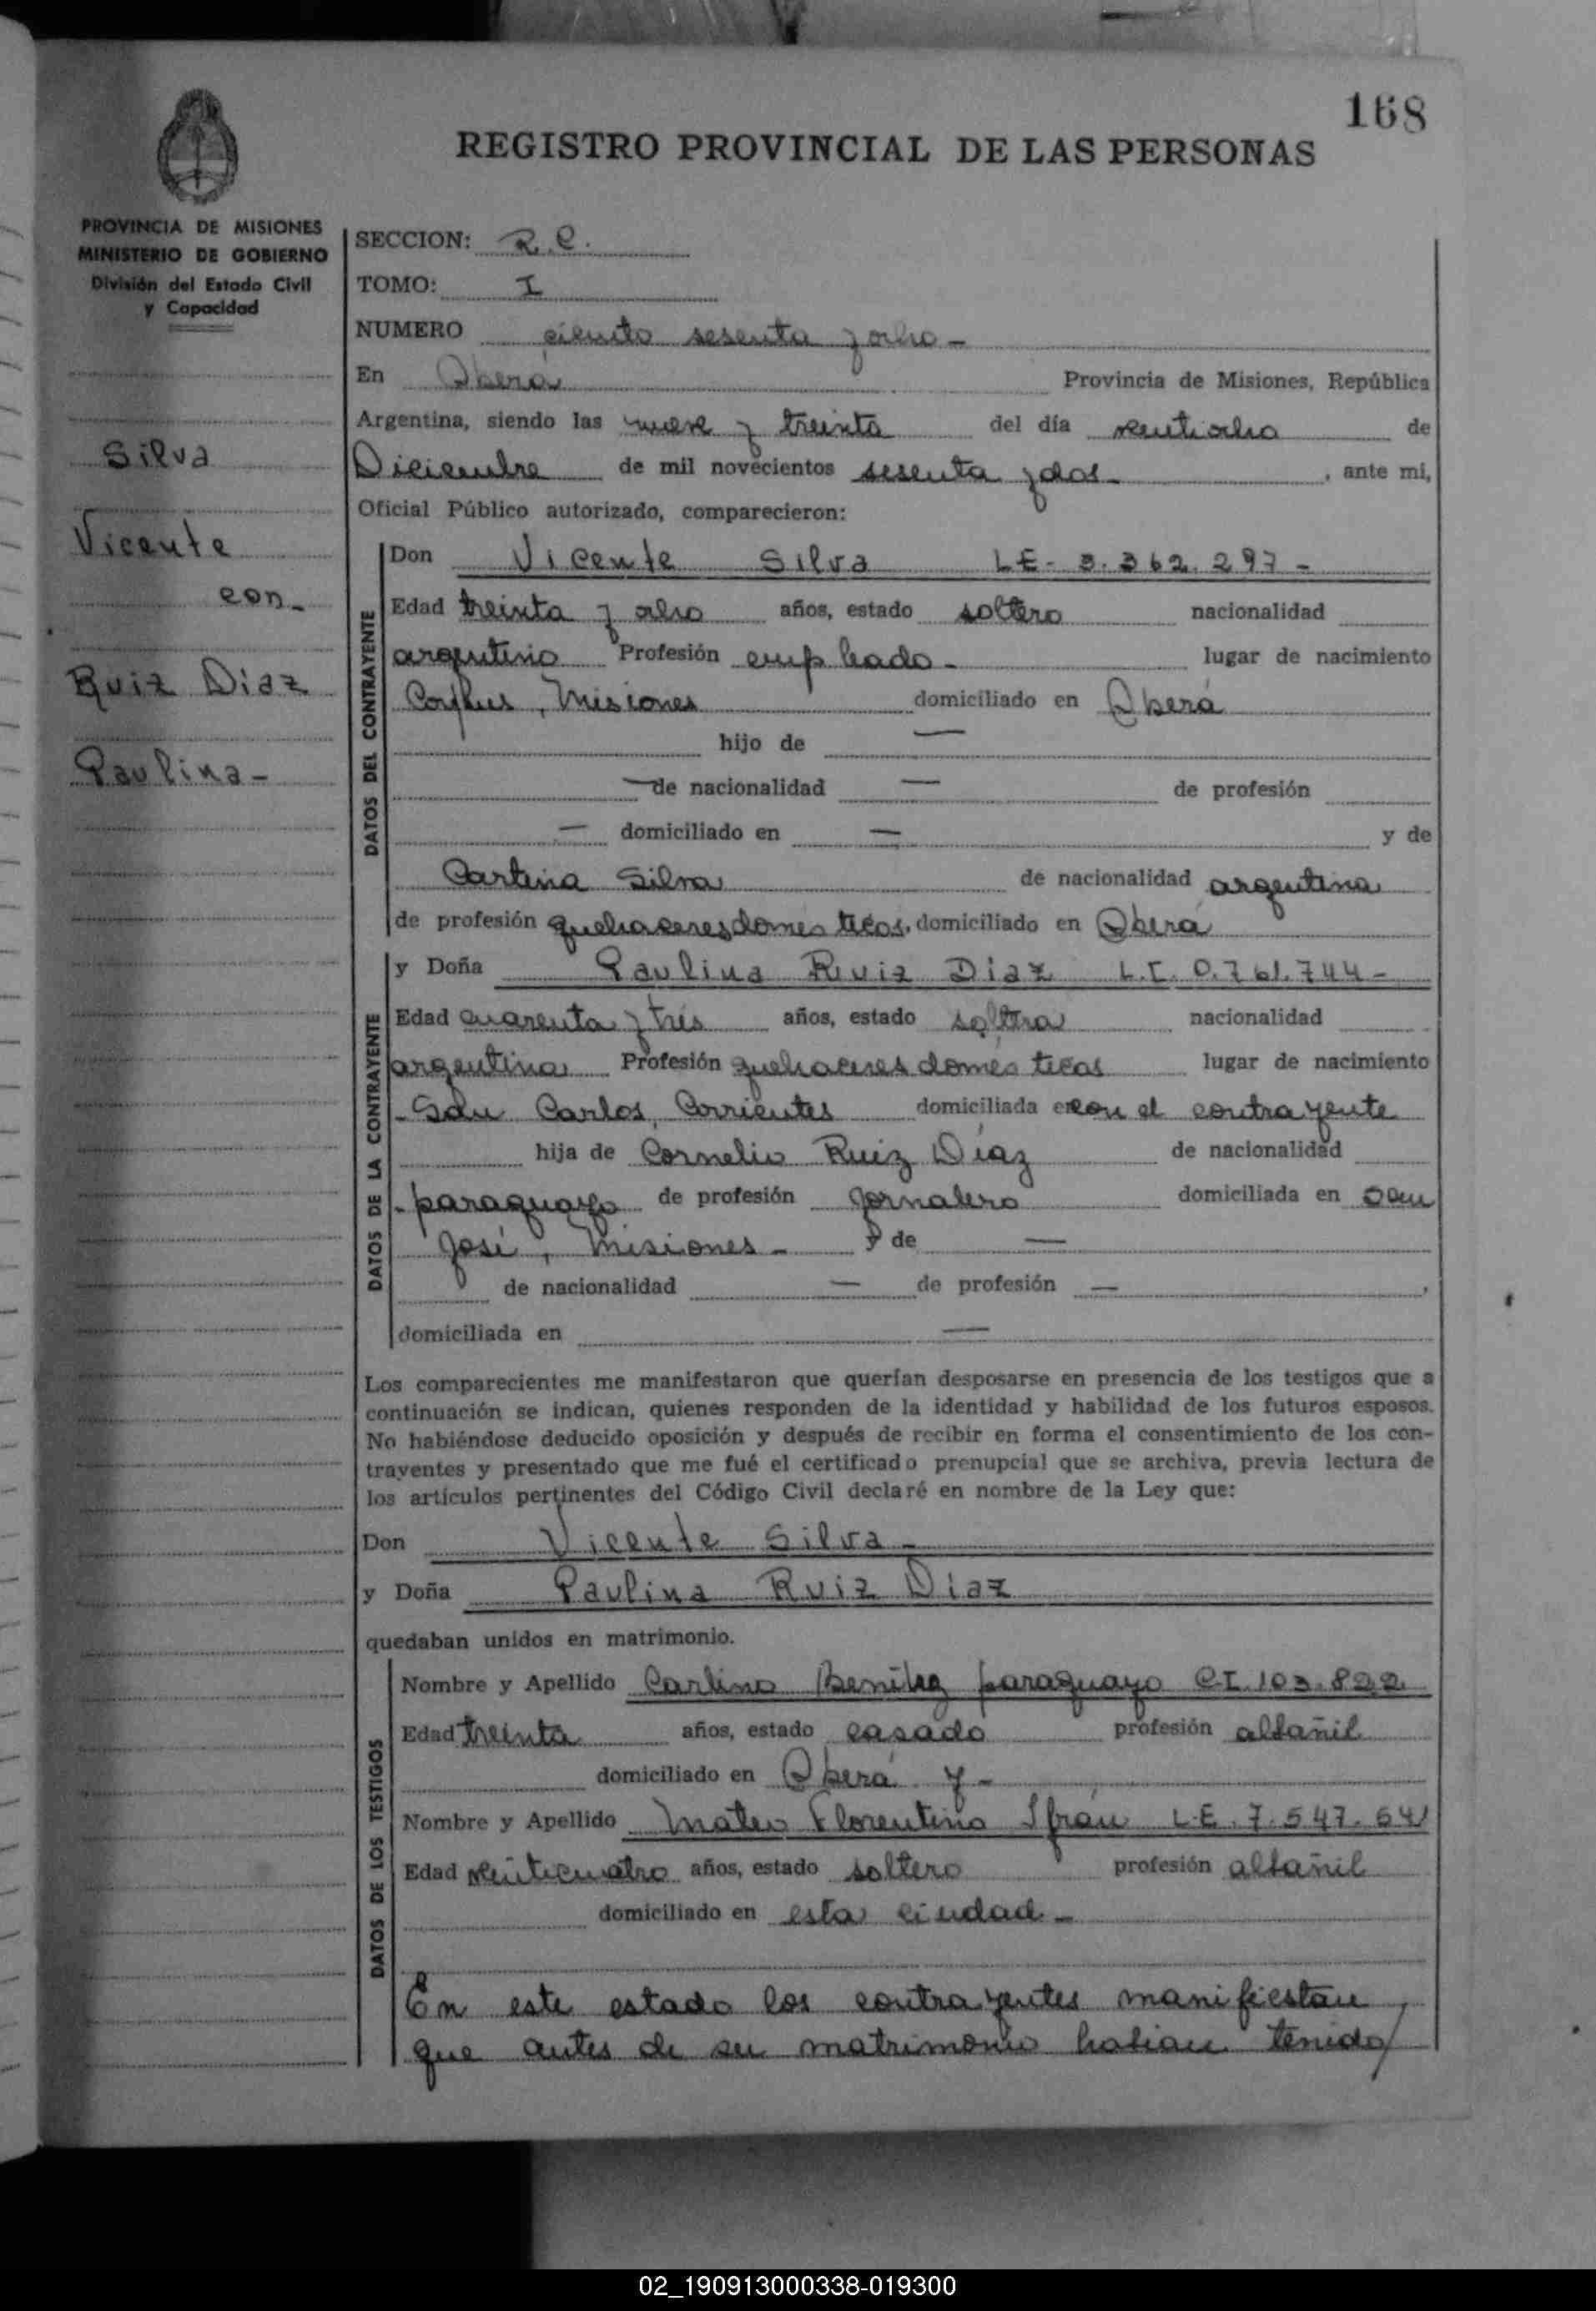 168
REGISTRO PROVINCIAL DE LAS PERSONAS
PROVINCIA DE MISIONES
MINISTERIO DE GOBIERNO
División del Estado Civil
y Capacidad
Silva
Vicente
con-
Ruiz Diaz
Paulina-
SECCION: R.C.
TOMO: I
NUMERO ciento sesenta y ocho-
En Oberá Provincia de Misiones, República
Argentina, siendo las nueve y treinta del día veintiocho de
Diciembre de mil novecientos sesenta y dos- , ante mi,
Oficial Público autorizado, comparecieron:
DATOS DEL CONTRAYENTE
Don Vicente Silva LE- 3.362.297-
Edad treinta y ocho años, estado soltero nacionalidad
argentino Profesión empleado- lugar de nacimiento
Corpus, Misiones domiciliado en Oberá
hijo de —
— de nacionalidad — de profesión
— domiciliado en — y de
Silva de nacionalidad argentina
de profesión quehaceres domésticos, domiciliado en Oberá
DATOS DE LA CONTRAYENTE
y Doña Paulina Ruiz Diaz L.C. 0.761.744-
Edad cuarenta y tres años, estado soltera nacionalidad
argentina Profesión quehaceres domésticos lugar de nacimiento
-San Carlos, Corrientes domiciliada en con el contrayente
hija de Cornelio Ruiz Díaz de nacionalidad
-paraguayo de profesión jornalero domiciliada en San
José, Misiones- y de —
de nacionalidad — de profesión — ,
domiciliada en —
Los comparecientes me manifestaron que querían desposarse en presencia de los testigos que a
continuación se indican, quienes responden de la identidad y habilidad de los futuros esposos.
No habiéndose deducido oposición y después de recibir en forma el consentimiento de los con-
trayentes y presentado que me fué el certificado prenupcial que se archiva, previa lectura de
los artículos pertinentes del Código Civil declaré en nombre de la Ley que:
Don Vicente Silva-
y Doña Paulina Ruiz Diaz
quedaban unidos en matrimonio.
DATOS DE LOS TESTIGOS
Nombre y Apellido Carlino Benitez paraguayo C.I. 103.822
Edad treinta años, estado casado profesión albañil
domiciliado en Oberá y-
Nombre y Apellido Mateo Florentino Ifrán L.E. 7.547.641
Edad veinticuatro años, estado soltero profesión albañil
domiciliado en esta ciudad-
En este estado los contrayentes manifiestan
que antes de su matrimonio habian tenido/
02_190913000338-019300